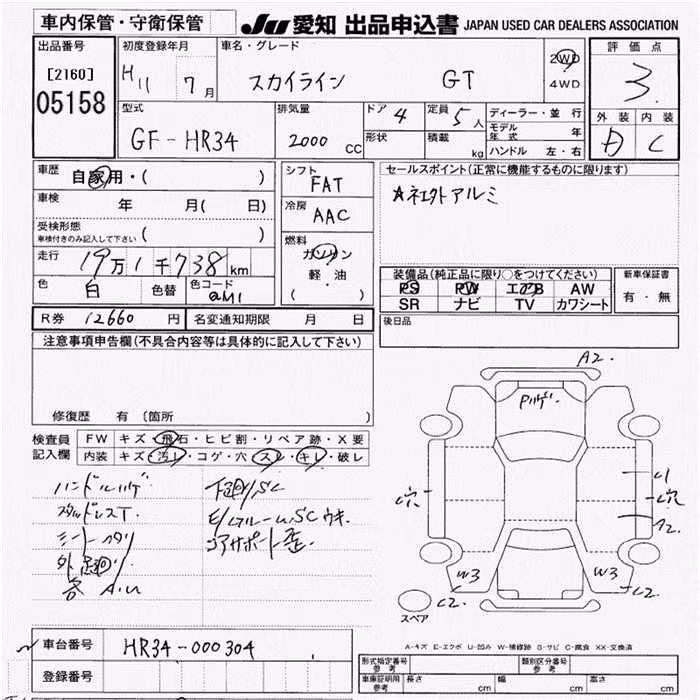 車内保管・守衛保管
JU 愛知 出品申込書 JAPAN USED CAR DEALERS ASSOCIATION
出品番号
[2160]
05158
初度登録年月
H11 7月
車名・グレード
スカイライン GT
2WD
4WD
評価点
3
外装 内装
D C
型式
GF-HR34
排気量
2000 CC
ドア 4
形状
定員 5人
積載 kg
ディーラー・並行
モデル年式 年
ハンドル 左・右
車歴 自家用・( )
車検 年 月( 日)
受検形態
車検付きのみ記入して下さい ( )
走行 19万1千738km
色 白 色替 色コード QM1
シフト
FAT
冷房
AAC
燃料
ガソリン
軽・油
( )
セールスポイント(正常に機能するものに限ります)
☆ネ土外アルミ
装備品(純正品に限り○をつけてください)
PS PW エアB AW
SR ナビ TV カワシート
新車保証書
有・無
R券 12660 円 名変通知期限 月 日
後日品
注意事項申告欄(不具合内容等は具体的に記入して下さい)
修復歴 有 (箇所 )
検査員記入欄
FW キズ・飛石・ヒビ割・リペア跡・X要
内装 キズ・汚レ・コゲ・穴・スレ・キレ・破レ
ハンドルハゲ
スタッドレスT.
シートヘタリ
外廻り
各 A.U
下廻りSC
E/GルームSCウキ.
コアサポート歪.
A2.
Pハゲ.
C1
C穴
C穴
A2.
W3
W3
C2.
C2.
スペア
A-キズ E-エクボ U-凹み W-補修跡 S-サビ C-腐食 XX-交換済
車台番号 HR34-000304
登録番号
型式指定番号 参考
類別区分番号 参考
車庫証明用 参考 長さ cm 幅 cm 高さ cm